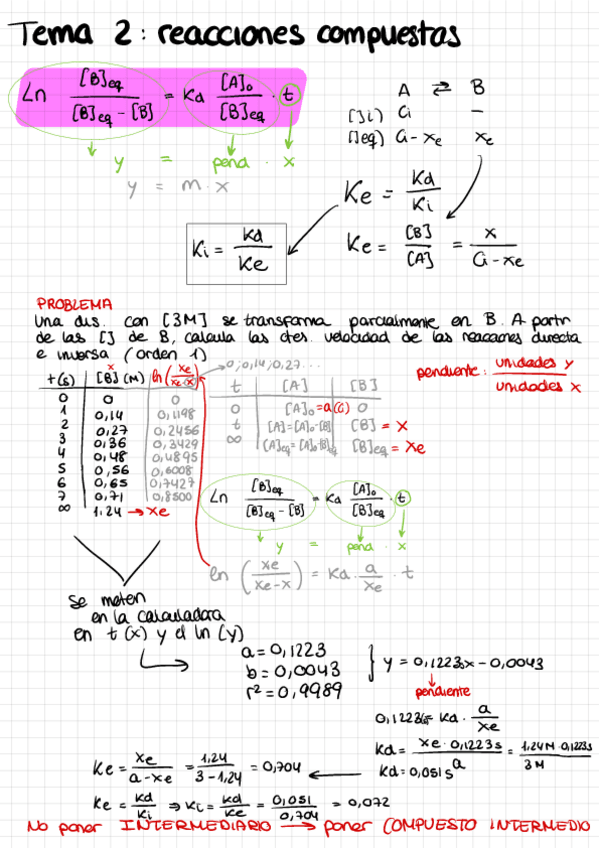 Tema 2: reacciones compuestas
Ln [B]eq / [B]eq - [B] = Kd [A]₀ / [B]eq · t
y = pend · x
y = m · x
A ⇄ B
[]i) a –
[]eq) a - xe xe
Ke = Kd / Ki
Ki = Kd / Ke
Ke = [B] / [A] = x / a - xe
PROBLEMA
Una dis. con [3M] se transforma parcialmente en B. A partir
de las [] de B, calcula las ctes. velocidad de las reacciones directa
e inversa (orden 1)
x
t(s) [B](M) ln(xe / xe-x)
0 0 0
1 0,14 0,1198
2 0,27 0,2456
3 0,36 0,3429
4 0,48 0,4895
5 0,56 0,6008
6 0,65 0,7427
7 0,71 0,8500
∞ 1.24 → xe
0; 0,14; 0,27...
t [A] [B]
0 [A]₀ = a(a) 0
t [A] = [A]₀ - [B] [B] = x
∞ [A]eq = [A]₀ - [B]eq [B]eq = xe
pendiente: unidades y / unidades x
Ln [B]eq / [B]eq - [B] = Kd [A]₀ / [B]eq · t
y = pend · x
ln (xe / xe - x) = Kd · a / xe · t
se meten
en la calculadora
en t (x) y el ln (y)
a = 0,1223
b = 0,0043
r² = 0,9989
y = 0,1223x - 0,0043
pendiente
0,1223 = Kd · a / xe
Kd = xe · 0,1223 s / a = 1,24M · 0,1223s / 3M
Kd = 0,051 s
Ke = xe / a - xe = 1,24 / 3 - 1,24 = 0,704
Ke = Kd / Ki ⇒ Ki = Kd / Ke = 0,051 / 0,704 = 0,072
No poner INTERMEDIARIO → poner COMPUESTO INTERMEDIO